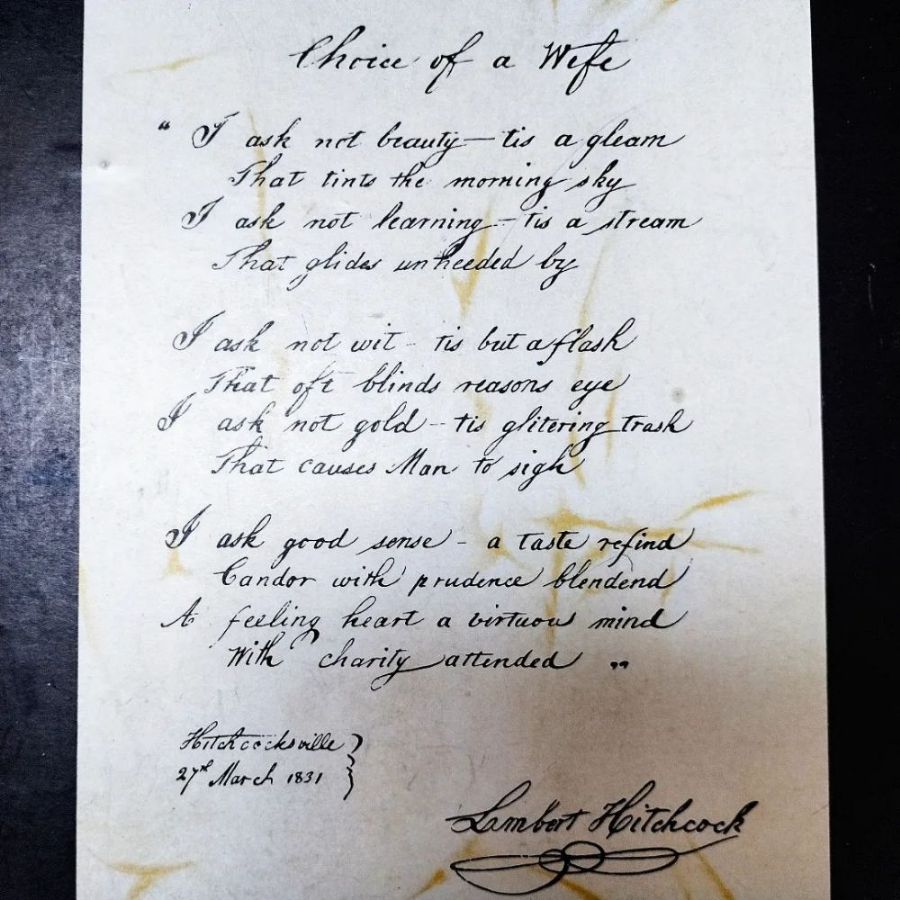 Choice of a Wife
“ I ask not beauty — tis a gleam
That tints the morning sky
I ask not learning – tis a stream
That glides unheeded by
I ask not wit – tis but a flash
That oft blinds reasons eye
I ask not gold – tis glitering trash
That causes Man to sigh
I ask good sense – a taste refind
Candor with prudence blendend
A feeling heart a virtuous mind
With charity attended „
Hitchcocksville
27th March 1831
Lambert Hitchcock